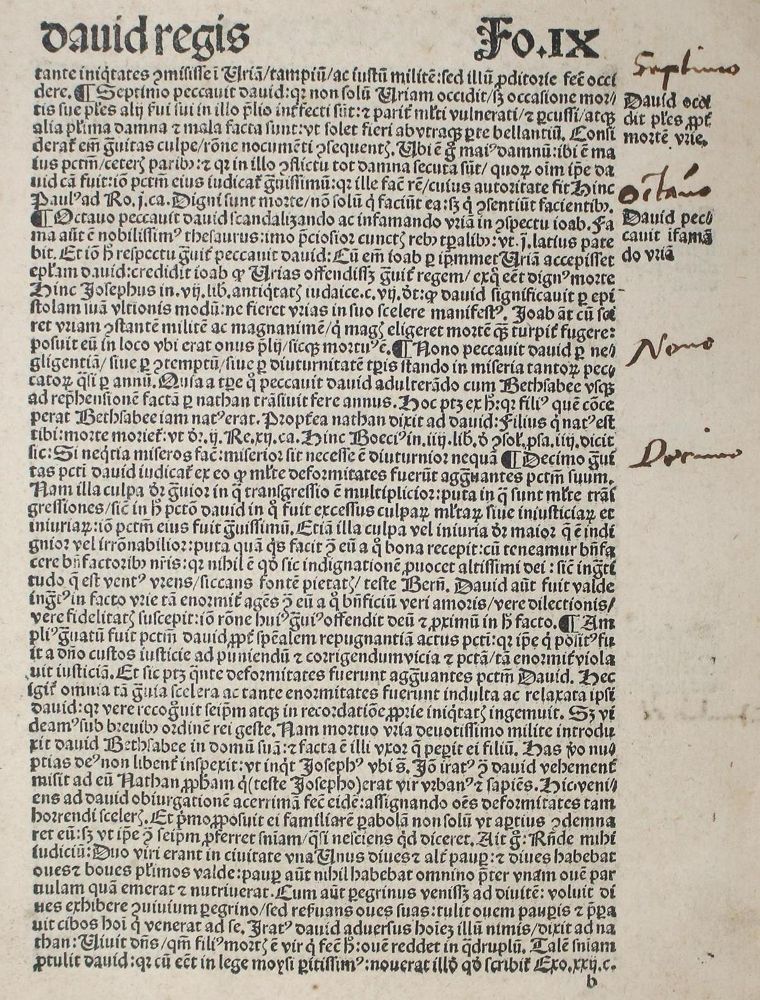 Dauid regis Fo.IX
tante iniq̃tates ↄmisisse ĩ Uriã/tampiũ/ac iustũ militẽ:sed illũ ꝓditorie fec̃t occi
dere.¶ Septimo peccauit dauid:qr non solũ Uriam occidit/sꝫ occasione mor/
tis sue pl̃es alij fui sui in illo p̃lio int̃fecti sũt:⁊ parit̃ ml̃ti vulnerati/⁊ ꝑcussi/atqꝫ
alia pl̃ima damna ⁊ mala facta sunt:vt solet fieri abvtraqꝫ ꝑte bellantiũ. Consi
derat̃ em̃ g̃uitas culpe/rõne nocumẽti ↄsequentꝭ. Ubi ẽ g̊ maiꝰ damnũ:ibi ẽ ma
ius pctm̃/ceterꝭ paribꝰ:⁊ qr in illo ↄflictu tot damna secuta sũt/ quoꝝ oĩm ip̃e da
uid cã fuit:iõ pctm̃ eius iudicat̃ g̃uissimũ:qr ille facẽ rẽ/cuius autoritate fit Hinc
Paulꝰ ad Ro.j.ca. Digni sunt morte/nõ solũ q̃ faciũt ea:sꝫ q̃ ↄsentiũt facientibꝰ.
¶ Octauo peccauit dauid scandalizando ac infamando vriã in ↄspectu ioab. Fa
ma aũt ẽ nobilissimꝰ thesaurus:imo p̃ciosior cunctꝭ rebꝰ tp̃alibꝰ:vt.j.latius pate
bit. Et iõ h̃ respectu g̃uit̃ peccauit dauid: Cũ em̃ ioab ꝑ ip̃mmet Uriã accepisset
ep̃lam dauid:credidit ioab ꝙ Urias offendissꝫ g̃uit̃ regem/exq̊ eẽt dignꝰ morte
Hinc Josephus in.vij.lib.antiq̃tatꝭ iudaice.c.vij.dt̃:ꝙ dauid significauit ꝑ epi
stolam suã vltionis modũ:ne fieret vrias in suo scelere manifestꝰ. Joab aũt cũ sci
ret vriam ↄstantẽ militẽ ac magnanimẽ/q̃ magꝭ eligeret mortẽ q̃ꝫ turpit̃ fugere:
posuit eũ in loco vbi erat onus p̃lij/sicqꝫ mortuꝰ ẽ.¶ Nono peccauit dauid ꝑ ne/
gligentiã/siue ꝑ ↄtemptũ/siue ꝑ diuturnitatẽ tp̃is stando in miseria tantoꝝ pec/
catoꝝ q̃si ꝑ annũ. Quia a tp̃e q̊ peccauit dauid adulterãdo cum Bethsabee vsqꝫ
ad rep̃hensionẽ factã ꝑ nathan trãsiuit fere annus. Hoc ptꝫ ex h̃:qr filiꝰ quẽ cõce
perat Bethsabee iam natꝰ erat. Propt̃ea nathan dixit ad dauid: Filius q̃ natꝰ est
tibi:morte moriet̃:vt dr̃.ij.Re.xij.ca. Hinc Boeciꝰ in.iiij.lib̃.d̃ ↄsol̃.p̃sa.iiij.dicit
sic: Si neq̃tia miseros fac̃:miserior sit necesse ẽ diuturnior nequã ¶ Decimo g̃ui
tas pcti dauid iudicat̃ ex eo ꝙ ml̃te deformitates fuerũt agg̃uantes pctm̃ suum.
Nam illa culpa dr̃ g̃uior in q̃ transgressio ẽ multiplicior:puta in q̃ sunt ml̃te trãs
gressiones/sic̃ in h̃ pctõ dauid in q̊ fuit excessus culpaꝝ ml̃taꝝ siue iniusticiaꝝ et
iniuriaꝝ:iõ pctm̃ eius fuit g̃uissimũ. Etiã illa culpa vel iniuria dr̃ maior q̃ ẽ indi
gnior vel irrõnabilior:puta quã q̃s facit ↄ̃ eũ a q̊ bona recepit:cũ teneamur bñfa
cere bñfactoribꝰ nr̃is:qr nihil ẽ qd̃ sic indignationẽ ꝓuocet altissimi dei : sic̃ ing̃ti
tudo q̃ est ventꝰ vrens/siccans fontẽ pietatꝭ/ teste Berñ. Dauid aũt fuit valde
ing̃tꝰ in facto vrie tã enormit̃ agẽs ↄ̃ eũ a q̊ bñficiũ veri amoris/vere dilectionis/
vere fidelitatꝭ suscepit:iõ rõne huiꝰ g̃uiꝰ offendit deũ ⁊ ꝓximũ in h̃ facto.¶ Am
pliꝰ g̃uatũ fuit pctm̃ dauid ꝓpt̃ sp̃ealem repugnantiã actus pcti:qr ip̃e q̃ positꝰ fu
it a dño custos iusticie ad puniendũ ⁊ corrigendum vicia ⁊ pctã/tã enormit̃ viola
uit iusticiã. Et sic ptꝫ q̃nte deformitates fuerunt agg̃uantes pctm̃ Dauid. Hec
igit̃ omnia tã g̃uia scelera ac tante enormitates fuerunt indulta ac relaxata ipsi
dauid:qr vere recog̃uit seip̃m atqꝫ in recordatiõe ꝓprie iniq̃tatꝭ ingemuit. Sꝫ vi
deamꝰ sub breuibꝰ ordinẽ rei geste. Nam mortuo vria deuotissimo milite introdu
xit dauid Bethsabee in domũ suã:⁊ facta ẽ illi vxor q̃ peꝑit ei filiũ. Has ṽo nu/
ptias deꝰ non libent̃ inspexit:vt inq̃t Josephꝰ vbi s̃. Jõ iratꝰ ↄ̃ dauid vehement̃
misit ad eũ Nathan ꝓphãm q̃(teste Josepho)erat vir vrbanꝰ ⁊ sapiẽs. Hic veni/
ens ad dauid obiurgationẽ acerrimã fec̃ eidẽ:assignando oẽs deformitates tam
horrendi scelerꝭ. Et p̃mo ꝓposuit ei familiarẽ ꝑabolã non solũ vt aꝑtius ↄdemna
ret eũ:sꝫ vt ip̃e ↄ̃ seip̃m ꝓferret sniam/q̃si nesciens qd̃ diceret. Ait g̊: Rñde mihi
iudiciũ: Duo viri erant in ciuitate vna Unus diues ⁊ alt̃ pauꝑ:⁊ diues habebat
oues ⁊ boues pl̃imos valde:pauꝑ aũt nihil habebat omnino p̃ter vnam ouẽ par
uulam quã emerat ⁊ nutriuerat. Cum aũt ꝑegrinus venissꝫ ad diuitẽ: voluit di
ues exhibere ↄuiuium ꝑegrino/sed refuans oues suas:tulit ouem pauꝑis ⁊ p̃ꝑa
uit cibos hoĩ q̃ venerat ad se. Iratꝰ dauid aduersus hoĩeꝫ illũ nimis/dixit ad na
than: Uiuit dñs/qm̃ filiꝰ mortꝭ ẽ vir q̃ fec̃ h̃:ouẽ reddet in q̃druplũ. Talẽ sniam
ꝓtulit dauid:qr cũ eẽt in lege moysi ꝑitissimꝰ:nouerat illd̃ qd̃ scribit̃ Exo.xxij.c.
b
Septimo
Dauid occi
dit pl̃es ꝓpt̃
mortẽ vrie.
Octauo
Dauid pec/
cauit ifamã
do vriã
Nono
Decimo